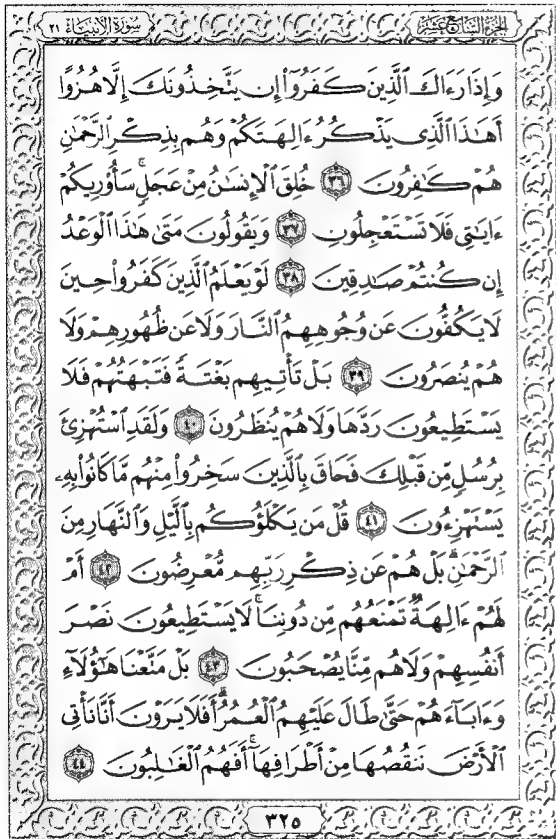 الجزء السابع عشر
سورة الأنبياء ٢١
وَإِذَا رَءَاكَ ٱلَّذِينَ كَفَرُوٓا۟ إِن يَتَّخِذُونَكَ إِلَّا هُزُوًا
أَهَٰذَا ٱلَّذِى يَذْكُرُ ءَالِهَتَكُمْ وَهُم بِذِكْرِ ٱلرَّحْمَٰنِ
هُمْ كَٰفِرُونَ ٣٦ خُلِقَ ٱلْإِنسَٰنُ مِنْ عَجَلٍۚ سَأُو۟رِيكُمْ
ءَايَٰتِى فَلَا تَسْتَعْجِلُونِ ٣٧ وَيَقُولُونَ مَتَىٰ هَٰذَا ٱلْوَعْدُ
إِن كُنتُمْ صَٰدِقِينَ ٣٨ لَوْ يَعْلَمُ ٱلَّذِينَ كَفَرُوا۟ حِينَ
لَا يَكُفُّونَ عَن وُجُوهِهِمُ ٱلنَّارَ وَلَا عَن ظُهُورِهِمْ وَلَا
هُمْ يُنصَرُونَ ٣٩ بَلْ تَأْتِيهِم بَغْتَةً فَتَبْهَتُهُمْ فَلَا
يَسْتَطِيعُونَ رَدَّهَا وَلَا هُمْ يُنظَرُونَ ٤٠ وَلَقَدِ ٱسْتُهْزِئَ
بِرُسُلٍ مِّن قَبْلِكَ فَحَاقَ بِٱلَّذِينَ سَخِرُوا۟ مِنْهُم مَّا كَانُوا۟ بِهِۦ
يَسْتَهْزِءُونَ ٤١ قُلْ مَن يَكْلَؤُكُم بِٱلَّيْلِ وَٱلنَّهَارِ مِنَ
ٱلرَّحْمَٰنِۗ بَلْ هُمْ عَن ذِكْرِ رَبِّهِم مُّعْرِضُونَ ٤٢ أَمْ
لَهُمْ ءَالِهَةٌ تَمْنَعُهُم مِّن دُونِنَاۚ لَا يَسْتَطِيعُونَ نَصْرَ
أَنفُسِهِمْ وَلَا هُم مِّنَّا يُصْحَبُونَ ٤٣ بَلْ مَتَّعْنَا هَٰٓؤُلَآءِ
وَءَابَآءَهُمْ حَتَّىٰ طَالَ عَلَيْهِمُ ٱلْعُمُرُۗ أَفَلَا يَرَوْنَ أَنَّا نَأْتِى
ٱلْأَرْضَ نَنقُصُهَا مِنْ أَطْرَافِهَآۚ أَفَهُمُ ٱلْغَٰلِبُونَ ٤٤
٣٢٥